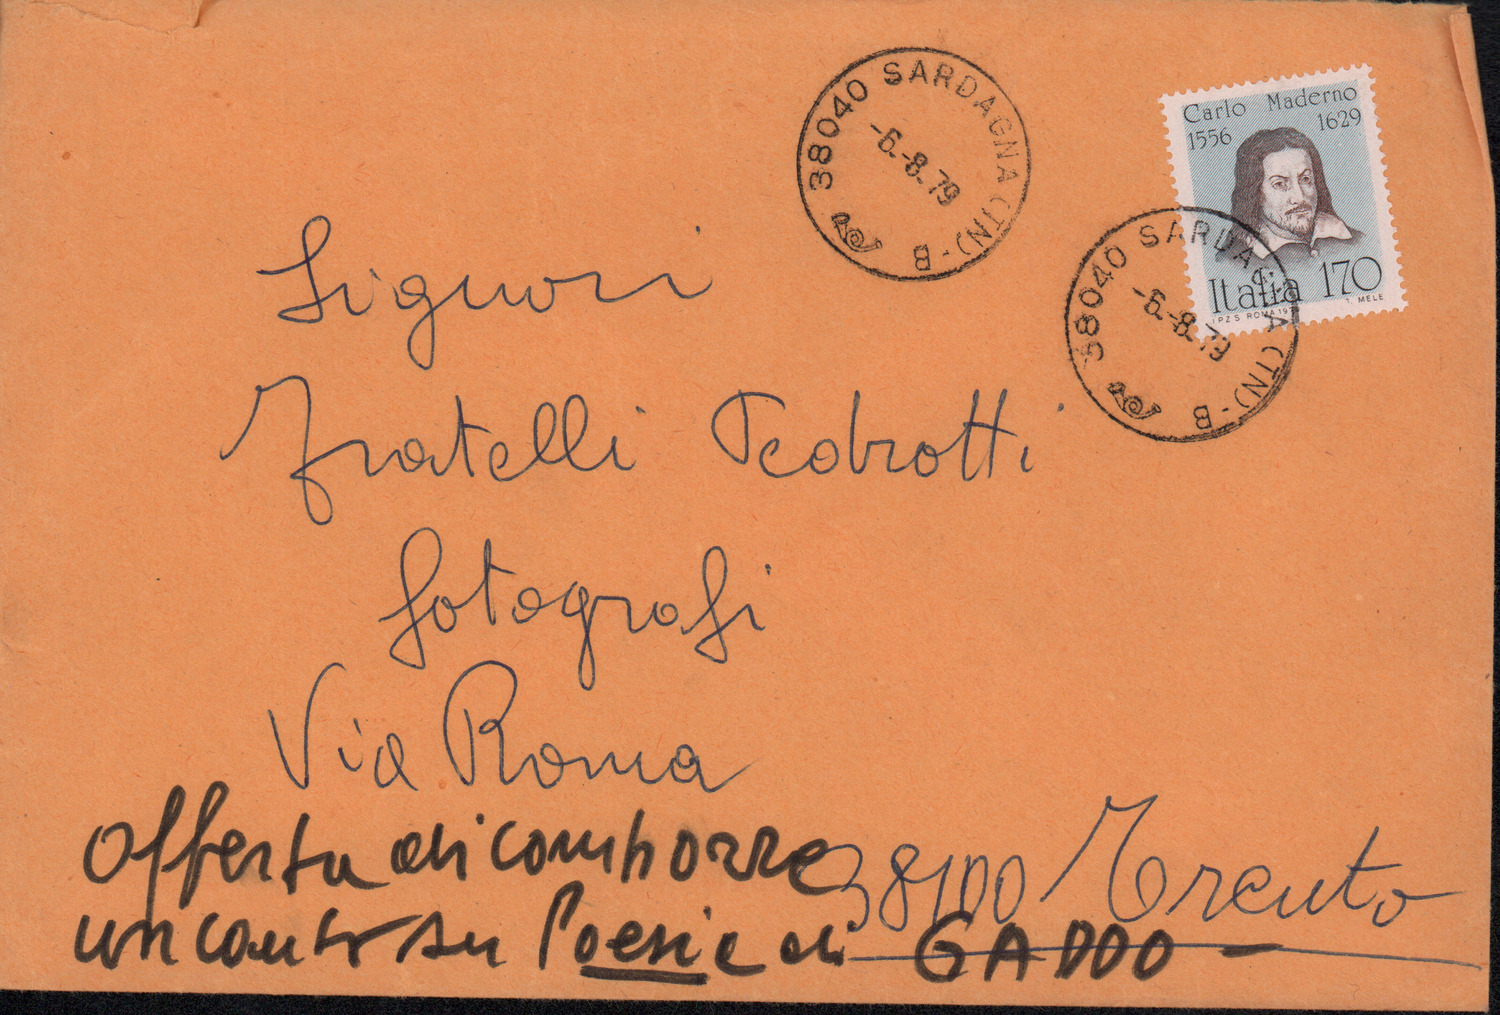 38040 SARDAGNA (TN) - B
-6.-8.79
Carlo Maderno
1556 1629
Italia 170
I P Z S ROMA 197 T. MELE
38040 SARDAGNA (TN) - B
-6.-8.79
Signori
Fratelli Pedrotti
fotografi
Via Roma
38100 Trento
Offerta di comporre
un canto su Poesie di GADDO -